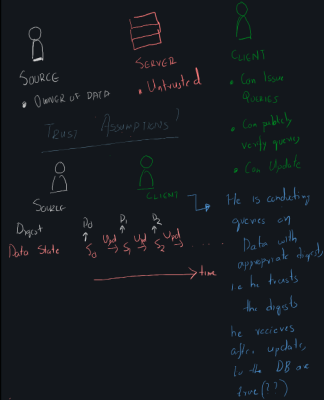 SOURCE
• OWNER OF DATA
SERVER
• Untrusted
CLIENT
• Can Issue
Queries
• Can publicly
verify queries
• Can Update
TRUST ASSUMPTIONS?
SOURCE
CLIENT
Digest
D0 D1 D2
Data State
S0 Upd S1 Upd S2 Upd ......
time
He is conducting
queries on
Data with
appropriate digests,
i.e he trusts
the digests
he recieves
after update,
to the DB are
true(??)